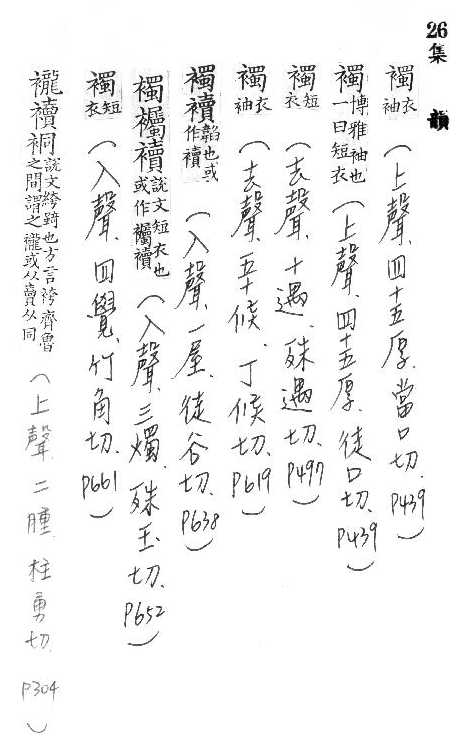 26 集韻
襡衣袖（上聲、四十五厚、當口切、P439）
襡博雅袖也一曰短衣（上聲、四十五厚、徒口切、P439）
襡短衣（去聲、十遇、殊遇切、P497）
襡衣袖（去聲、五十候、丁候切、P619）
襡襩韜也或作襩（入聲、一屋、徒谷切、P638）
襡襹襩說文短衣也或作襹襩（入聲、三燭、殊玉切、P652）
襡短衣（入聲、四覺、竹角切、P661）
襱襩裥說文絝踦也方言袴齊魯之間謂之襱或从賣从同（上聲、二腫、柱勇切、P304）